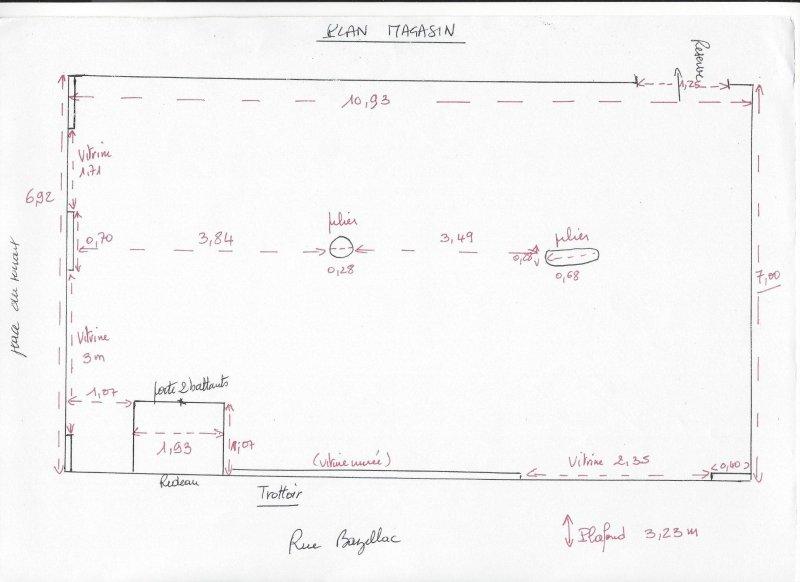 PLAN MAGASIN
Reserve
1,25
10,93
Vitrine
1,71
6,92
pilier
0,70
3,84
3,49
pilier
0,28
0,68
7,00
Vitrine
3 m
1,07
porte 2 battants
1,93
1,07
(vitrine murée)
Vitrine 2,35
0,60
Rideau
Trottoir
Rue Bazellac
Plafond 3,23 m